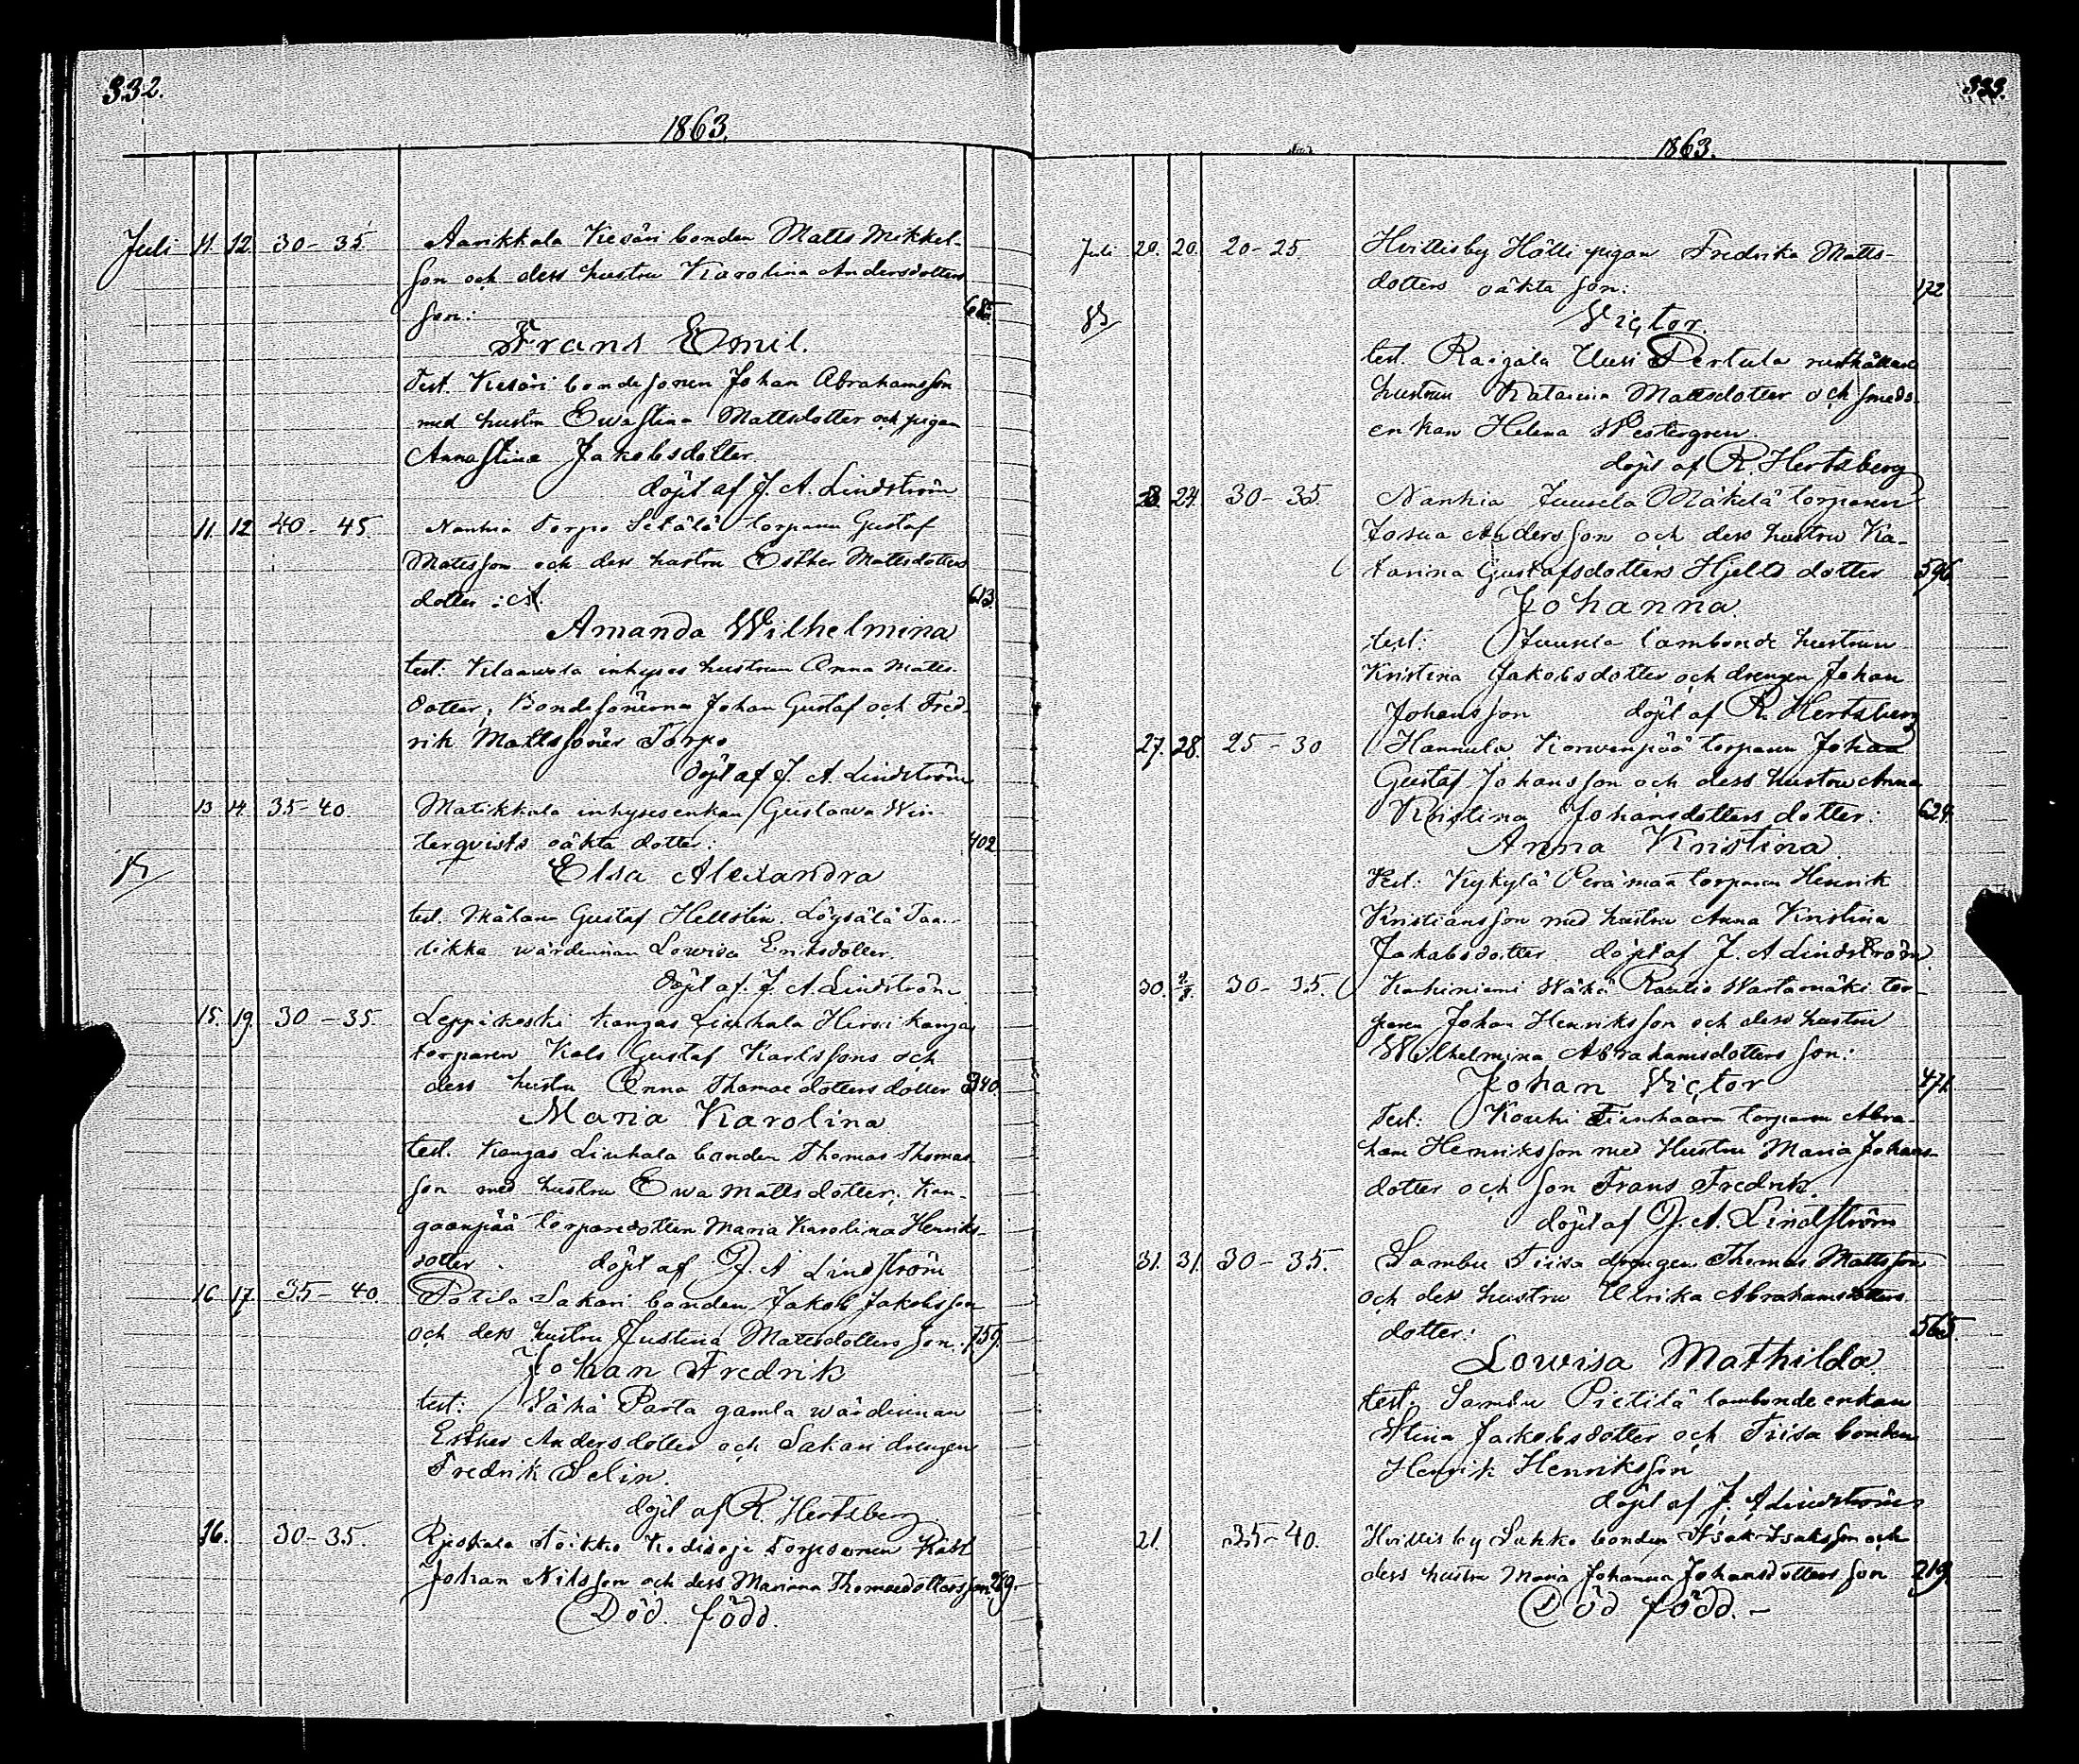 332.
1863.
Juli 11. 12. 30-35. Aarikkala Kesäri bonden Matts Mikkel-
son och dess hustru Karolina Andersdotters
son: 685
Frans Emil.
Test. Kesäri bondesonen Johan Abrahamsson
med hustru Ewa Stina Mattsdotter och pigan
Anna Stina Jakobsdotter.
döpt af J. A. Lindström
11. 12 40-45. Nanhia Torpo Setälä torparen Gustaf
Matsson och dess hustru Esther Mattsdotters
dotter: 613.
Amanda Wilhelmina
test. inhyses hustrun Anna Matts-
dotter, Bondesönerna Johan Gustaf och Fred-
rik Mattssöner Torpo
döpt af J. A. Lindström
13 14. 35-40. Matikkala inhysesenkan Gustawa Win-
terqvists oäkta dotter: 402
Elsa Alexandra
test. Gustaf Hellstén. Löysälä
wärdinnan Lowisa Eriksdotter.
döpt af J. A. Lindström
15. 19. 30-35. Leppikoski Kangas Liuhala Hirsikangas
torparen Kals Gustaf Karlssons och
dess hustru Anna Thomaedotters dotter 340.
Maria Karolina
test. Kangas Liuhala bonden Thomas Thomas-
son med hustru Ewa Mattsdotter; Kan-
gaanpää torparedottern Maria Karolina Henriks-
dotter. döpt af J. A. Lindström
16 17. 35-40. Potila Sakari bonden Jakob Jakobsson
och dess hustru Justina Matsdotters son: 759.
Johan Fredrik
test: Wähä Parta gamla wärdinnan
Esther Andersdotter och Sakari drengen
Fredrik Selin.
döpt af R. Hertzberg.
16. 30-35. Rjeskala Hoikko Kodisoja Torparen Karl
Johan Nilsson och dess Mariana Thomaedotters son: 269.
Död född.
333.
1863.
Juli 20. 20. 20-25. Hvittisby Hölli pigan Fredrika Matts-
dotters oäkta son: 172
Victor.
test. Raijala Uusi Pertula rusthållare
hustrun Katarina Mattsdotter och smeds-
enkan Helena Westergren.
döpt af R. Hertzberg
23. 24. 30-35. Nanhia Juusela Mäkelä torparen
Josua Andersson och dess hustru Ka-
tarina Gustafsdotters Hjelts dotter 596.
Johanna
test: Juusela lambonde hustrun
Kristina Jakobsdotter och drengen Johan
Johansson döpt af R. Hertzberg
27. 28. 25-30 Hannula Korwenpää torparen Johan
Gustaf Johansson och dess hustru Anna
Kristina Johansdotters dotter: 624.
Anna Kristina.
Test: Kykylä Perämaa torparen Henrik
Kristiansson med hustru Anna Kristina
Jakobsdotter. döpt af J. A. Lindström
30. 2/8. 30-35. Karhiniemi Wähä Rautio Wartamäki tor-
paren Johan Henriksson och dess hustru
Wilhelmina Abrahamsdotters son:
Johan Victor 471.
Test: Kouhi torparen Abra-
ham Henriksson med Hustru Maria Johans-
dotter och son Frans Fredrik.
döpt af J. A. Lindström
31. 31. 30-35. Sambu Tiisa drengen Thomas Mattsson
och dess hustru Ulrika Abrahamsdotters
dotter: 565
Lowisa Mathilda.
test: Sambu Pietilä lambondeenkan
Stina Jakobsdotter och Tiisa bonden
Henrik Henriksson
döpt af J. A. Lindström
21. 35-40. Hvittisby Sukko bonden Isak Isaksson och
dess hustru Maria Johanna Johansdotters son 219.
Död född.-